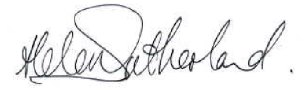 Helen Sutherland.